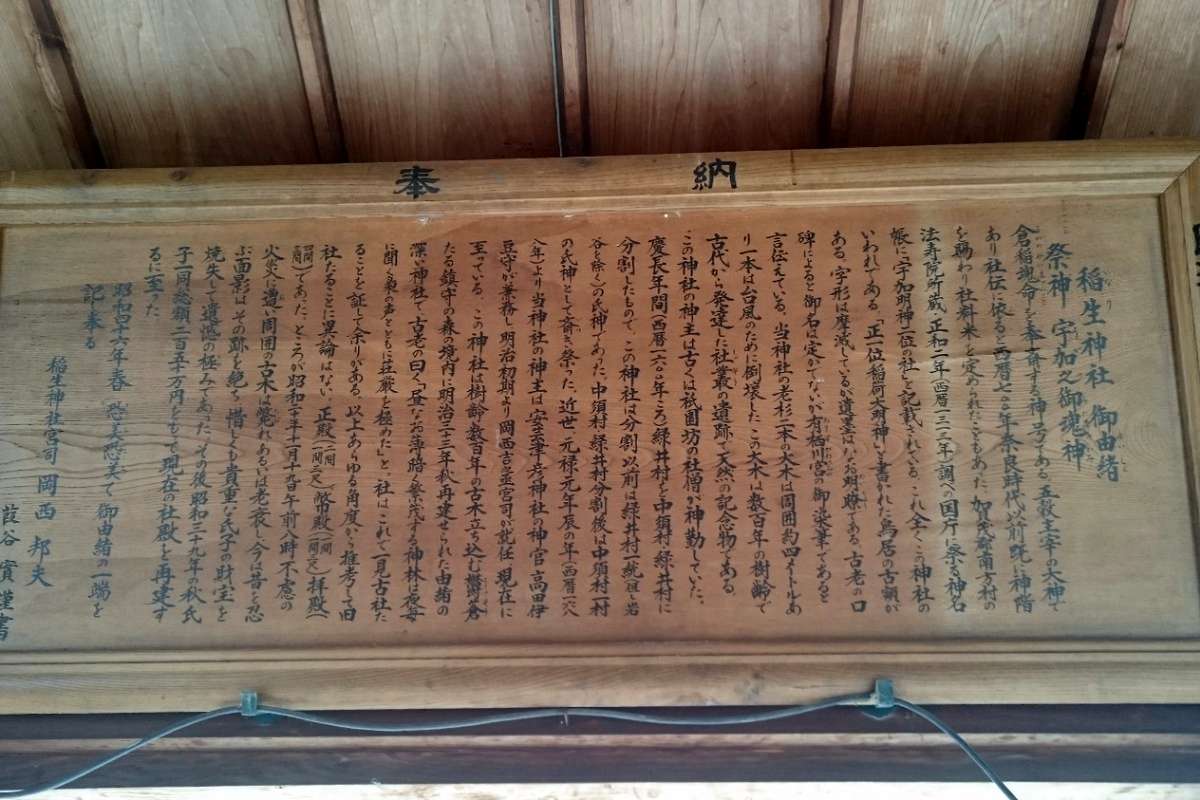 奉 納
稲生神社 御由緒
祭神 宇加之御魂神
倉稲魂命とを奉斎する神号である。五穀主宰の大神で
あり社伝に依ると西暦七〇〇年奈良時代以前既に神階
を賜わり社料米を定められたこともあった。南方村の
法寿院所蔵、正和二年(西暦一三一三年)調べの国庁に祭る神名
帳に「宇加明神二位の社」と記載されている。これ全くこの神社の
いわれである。「正一位稲荷大明神」と書かれた鳥居の古額が
ある。字形は摩滅しているが遺墨はなお明瞭である。古老の口
碑によると御名は定かでないが有栖川宮の御染筆であると
言伝えている。当神社の老杉二本の大木は周囲約四メートルあ
り一本は台風のために倒壊した。この大木は数百年の樹齢で
古代から発達した社叢の遺跡で天然の記念物である。
この神社の神主は古くは祇園坊の社僧が神勤していた。
慶長年間(西暦一六〇〇年ころ)緑井村を中須村、緑井村に
分割したもので、この神社は分割以前は緑井村一統(植竹、岩
谷を除く)の氏神であった。中須村、緑井村分割後は中須村一村
の氏神として斎き祭った。近世、元禄元年辰の年(西暦一六八
八年)より当神社の神主は安芸津彦神社の神官、高田伊
豆守が兼務し明治初期より岡西吉並宮司が就任、現在に
至っている。この神社は樹齢数百年の古木立ち込む鬱蒼
たる鎮守の森の境内に明治二十三年秋再建せられた由緒の
深い神社で、古老の曰く「昼なお薄暗く繁茂する神林は夜毎
に聞く梟の声とともに荘厳を極めた」と、社はこれで一見古社た
ることを証して余りがある。以上あらゆる角度から推考して旧
社たることに異論はない。正殿(一間一間三尺)幣殿(一間一間三尺)拝殿(二間三間)
であった。ところが昭和三十年十一月十九日午前八時不慮の
火災に遭い周囲の古木は斃れあるいは老衰し今は昔を忍
ぶ面影はその跡を絶ち惜しくも貴重な氏子の財宝を
焼失して遺憾の極みであった。その後昭和三十九年の秋氏
子一同総額二百五十万円をもって現在の社殿を再建す
るに至った。
昭和六十六年春 恐美恐美て御由緒の一端を
記し奉る
稲生神社宮司 岡西邦夫
葭谷 實 謹書